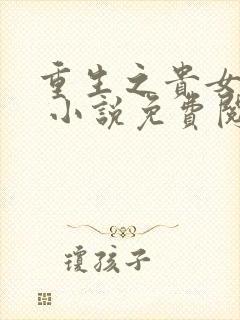 重生之貴女
小說免費閱
瓊孩子